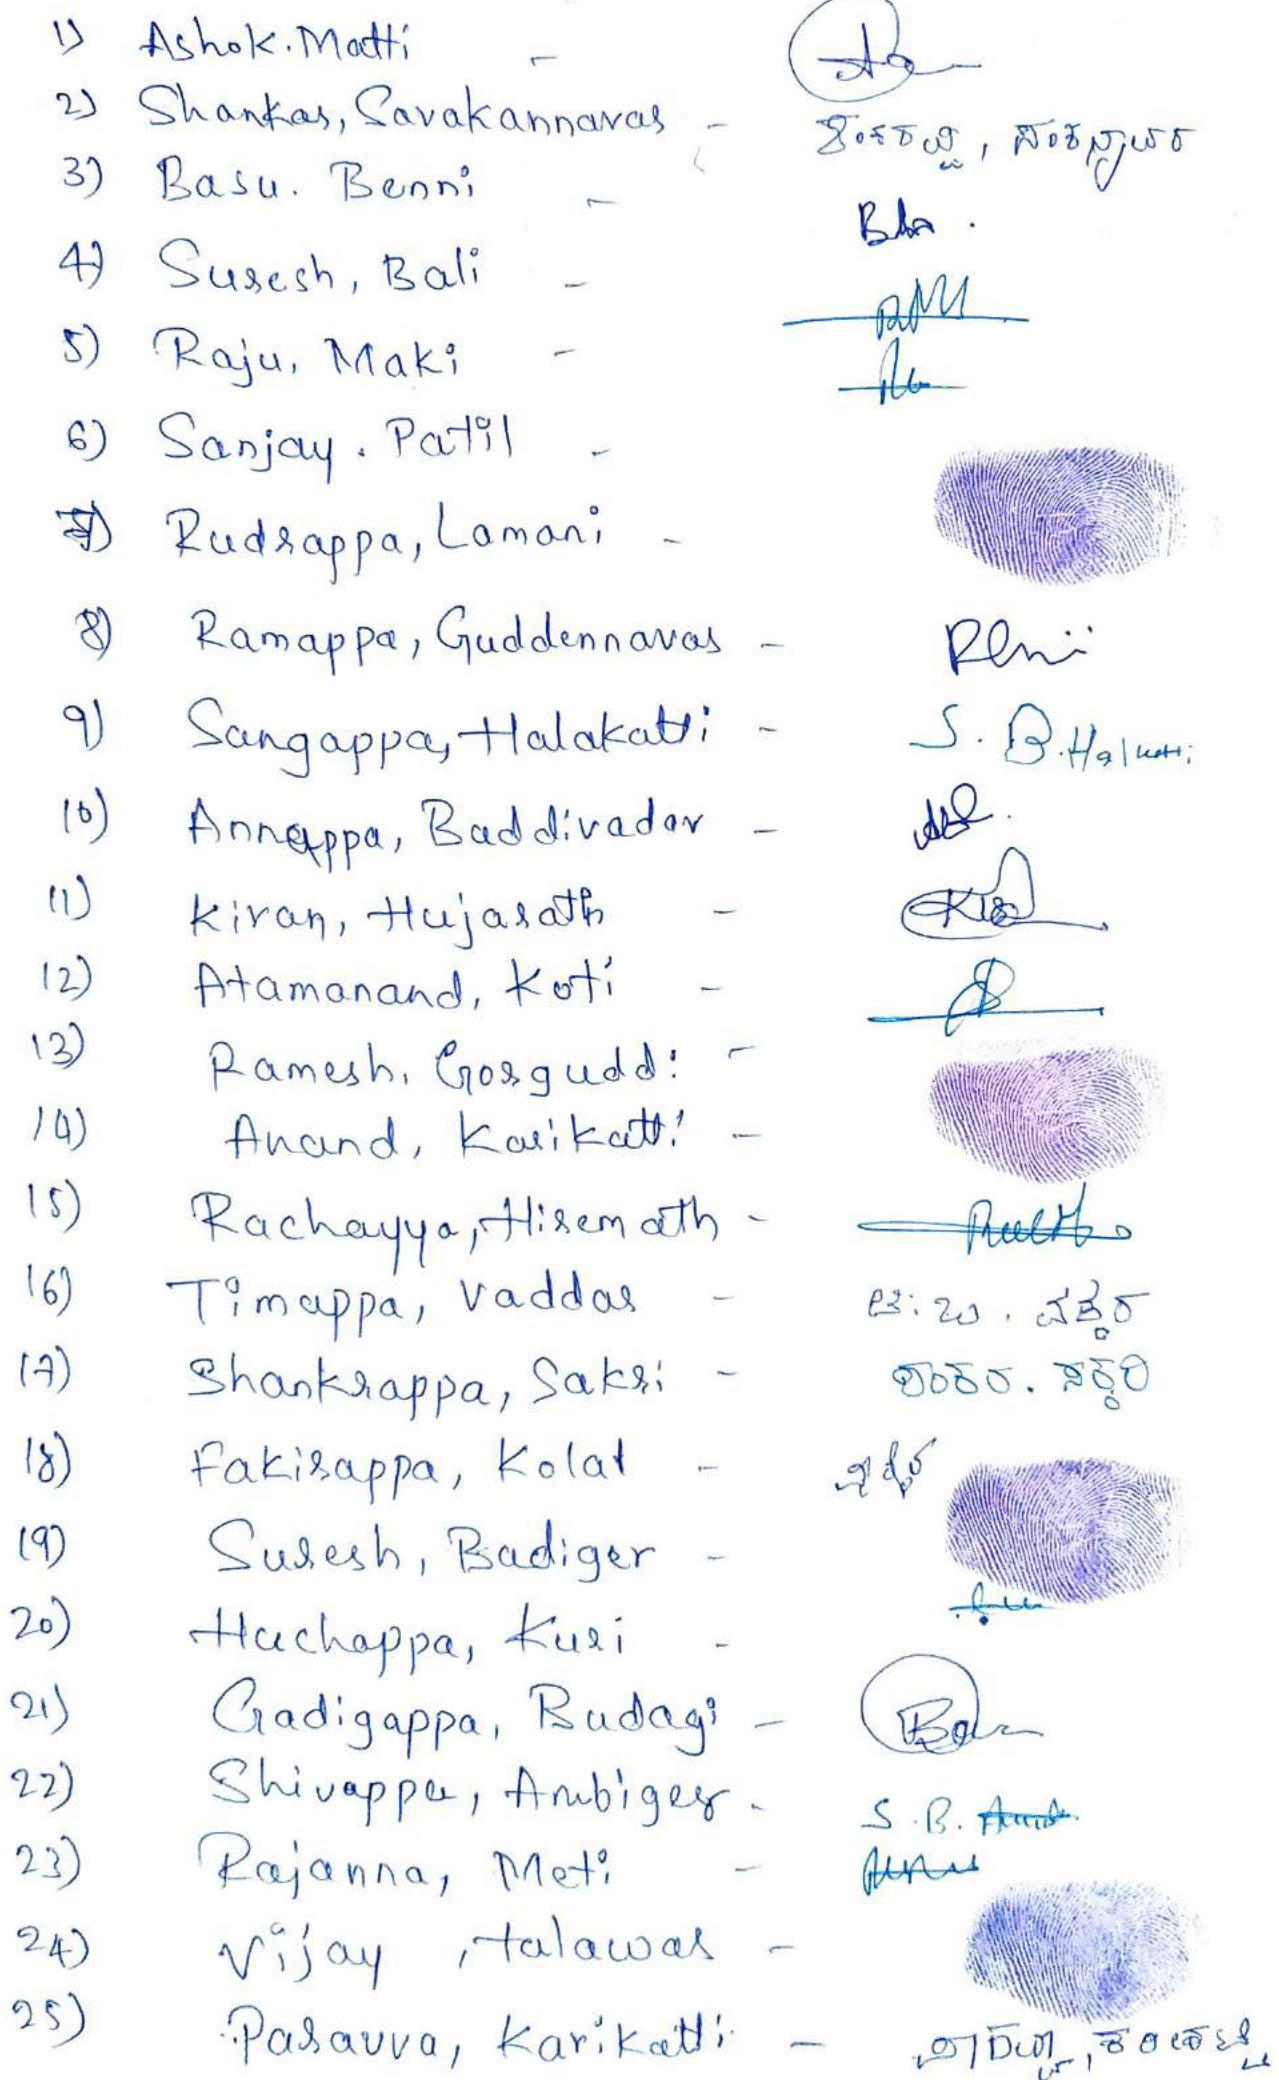 1) Ashok. Matti -
2) Shankar, Savakannavar -
3) Basu. Benni -
4) Suresh, Bali -
5) Raju, Maki -
6) Sanjay. Patil -
7) Rudrappa, Lamani -
8) Ramappa, Guddennavar -
9) Sangappa, Halakatti - S. B. Halkatti
10) Annappa, Baddivadar -
11) Kiran, Hujarath -
12) Atamanand, Koti -
13) Ramesh, Gorguddi -
14) Anand, Karikatti -
15) Rachayya, Hiremath -
16) Timappa, Vaddar -
17) Shankrappa, Sakri - ಶಂಕರ. ಸಕ್ಕರಿ
18) Fakirappa, Kolat -
19) Suresh, Badiger -
20) Huchappa, Kuri -
21) Gadigappa, Budagi -
22) Shivappa, Ambiger - S. B.
23) Rajanna, Meti -
24) Vijay, talawar -
25) Paravva, Karikatti -